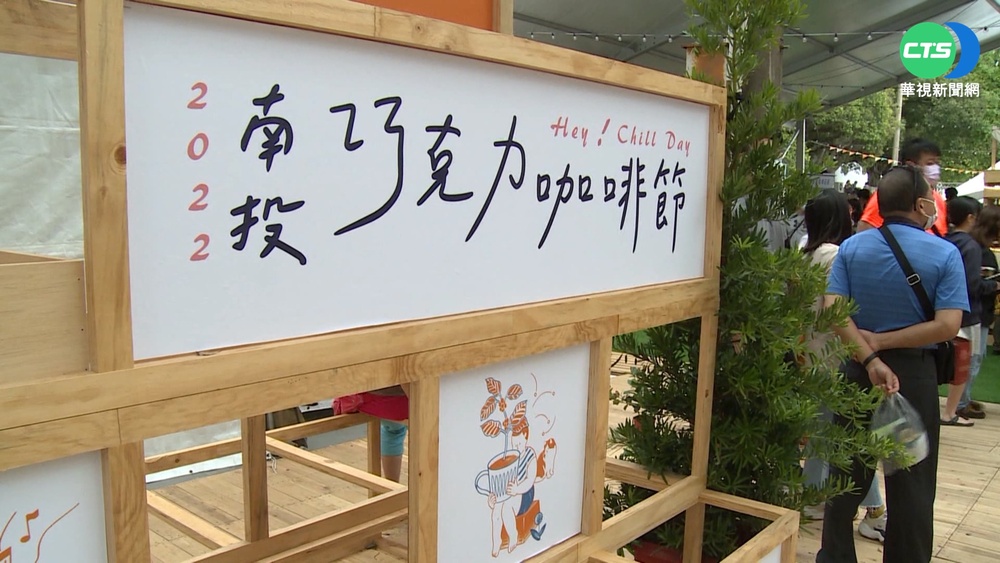 2022
南投
巧克力咖啡節
Hey! Chill Day
CTS
華視新聞網